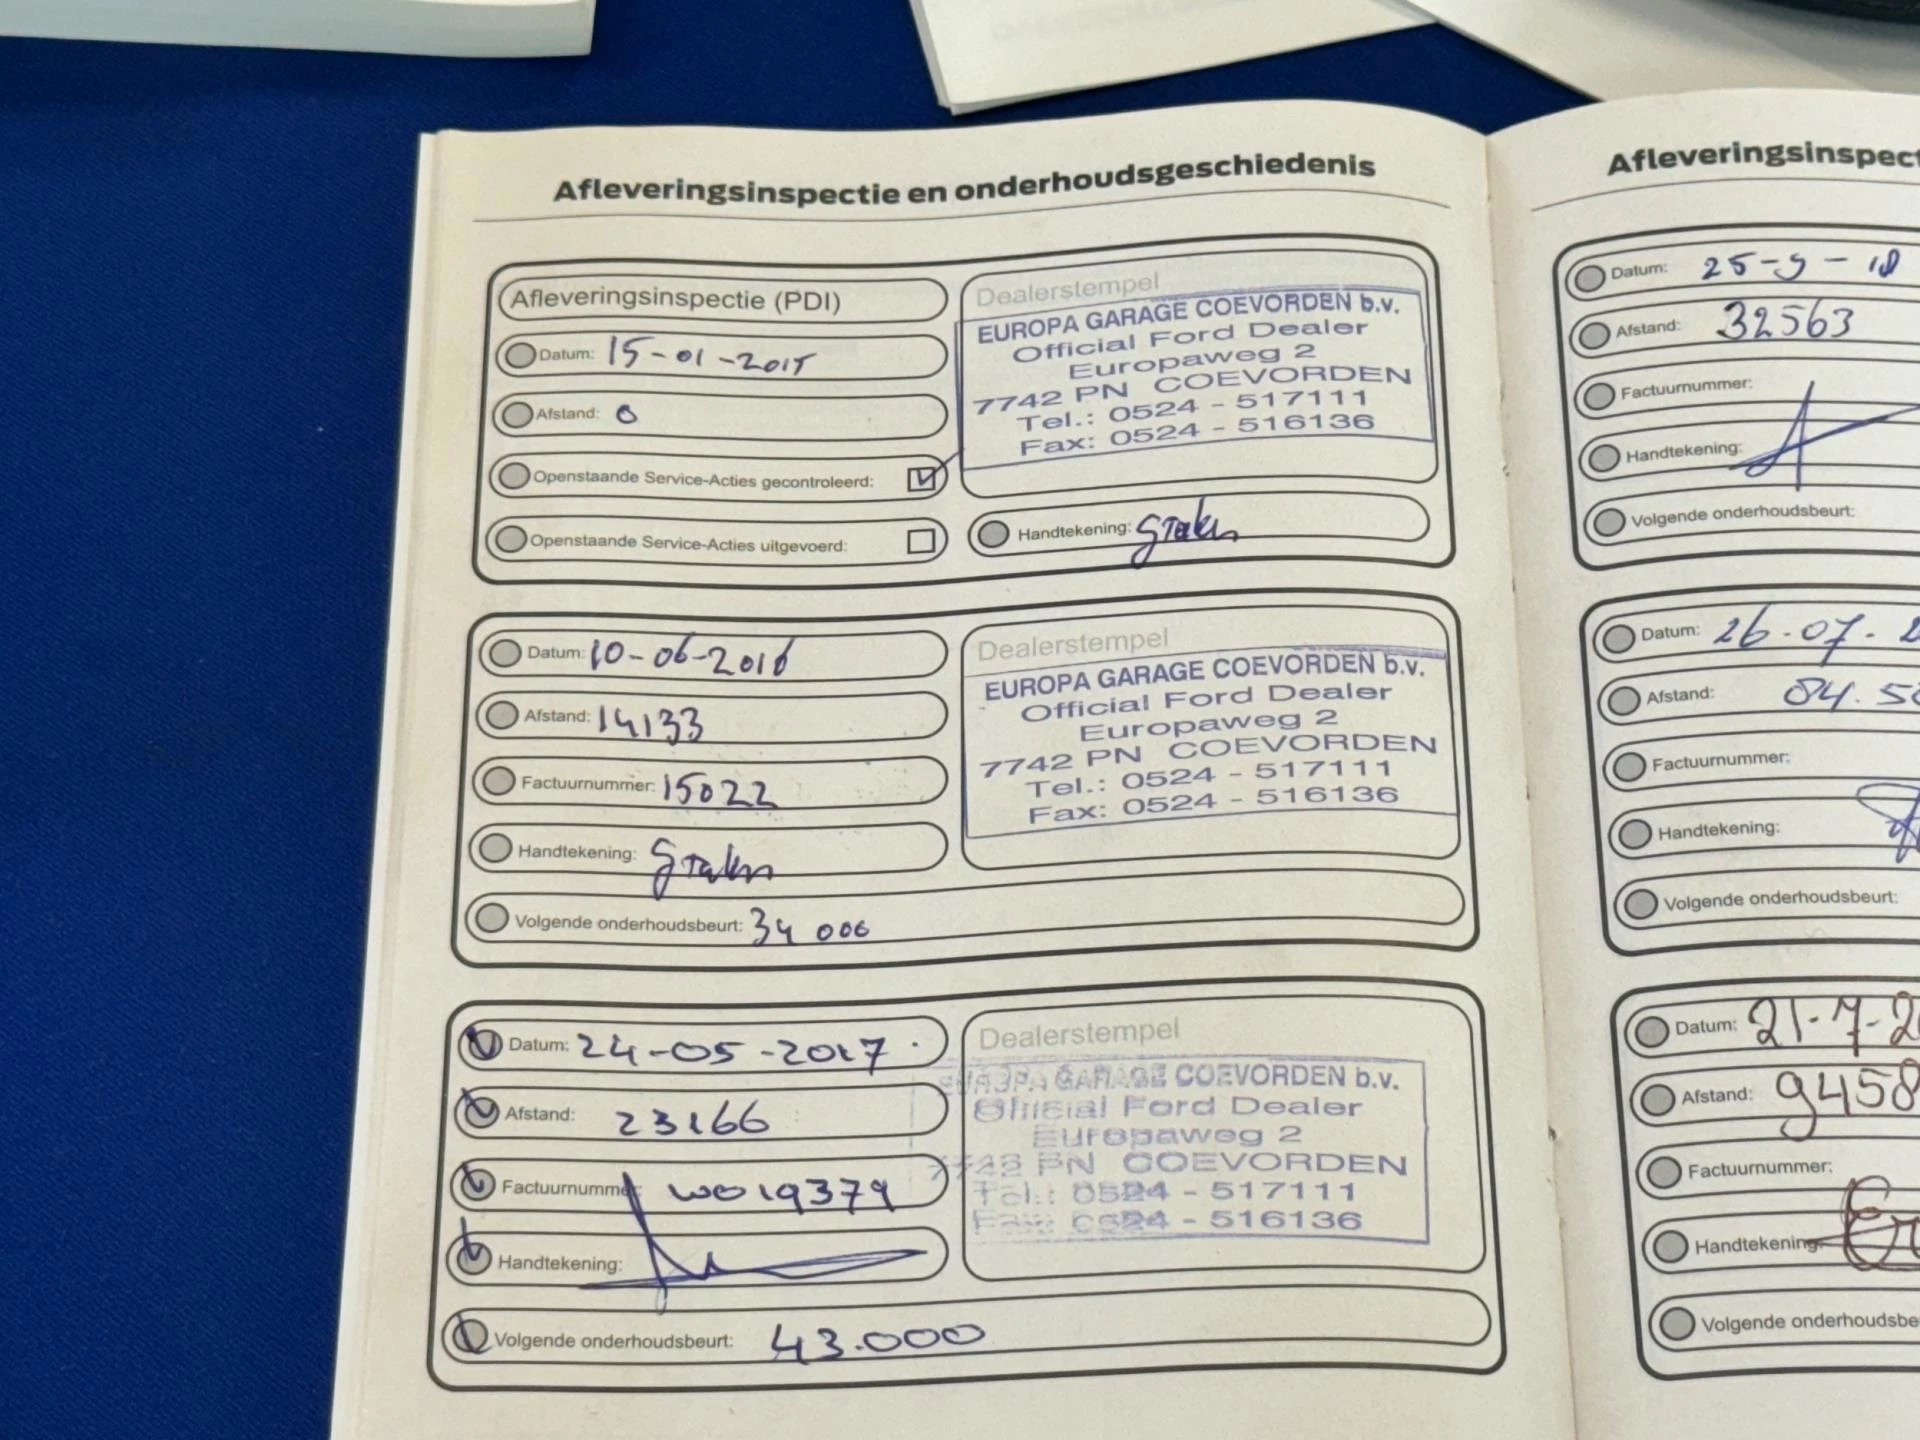 Afleveringsinspectie en onderhoudsgeschiedenis
Afleveringsinspectie (PDI)
Datum: 15-01-2015
Afstand: 0
Openstaande Service-Acties gecontroleerd:
Openstaande Service-Acties uitgevoerd:
Dealerstempel
EUROPA GARAGE COEVORDEN b.v.
Official Ford Dealer
Europaweg 2
7742 PN COEVORDEN
Tel.: 0524 - 517111
Fax: 0524 - 516136
Handtekening:
Datum: 10-06-2016
Afstand: 14133
Factuurnummer: 15022
Handtekening:
Volgende onderhoudsbeurt: 34 000
Dealerstempel
EUROPA GARAGE COEVORDEN b.v.
Official Ford Dealer
Europaweg 2
7742 PN COEVORDEN
Tel.: 0524 - 517111
Fax: 0524 - 516136
Datum: 24-05-2017
Afstand: 23166
Factuurnummer: WO19379
Handtekening:
Volgende onderhoudsbeurt: 43.000
Dealerstempel
EUROPA GARAGE COEVORDEN b.v.
Official Ford Dealer
Europaweg 2
7742 PN COEVORDEN
Tel.: 0524 - 517111
Fax: 0524 - 516136
Afleveringsinspect
Datum: 25-9-18
Afstand: 32563
Factuurnummer:
Handtekening:
Volgende onderhoudsbeurt:
Datum: 26-07-2
Afstand: 84.5
Factuurnummer:
Handtekening:
Volgende onderhoudsbeurt:
Datum: 21-7-2
Afstand: 9458
Factuurnummer:
Handtekening:
Volgende onderhoudsbe